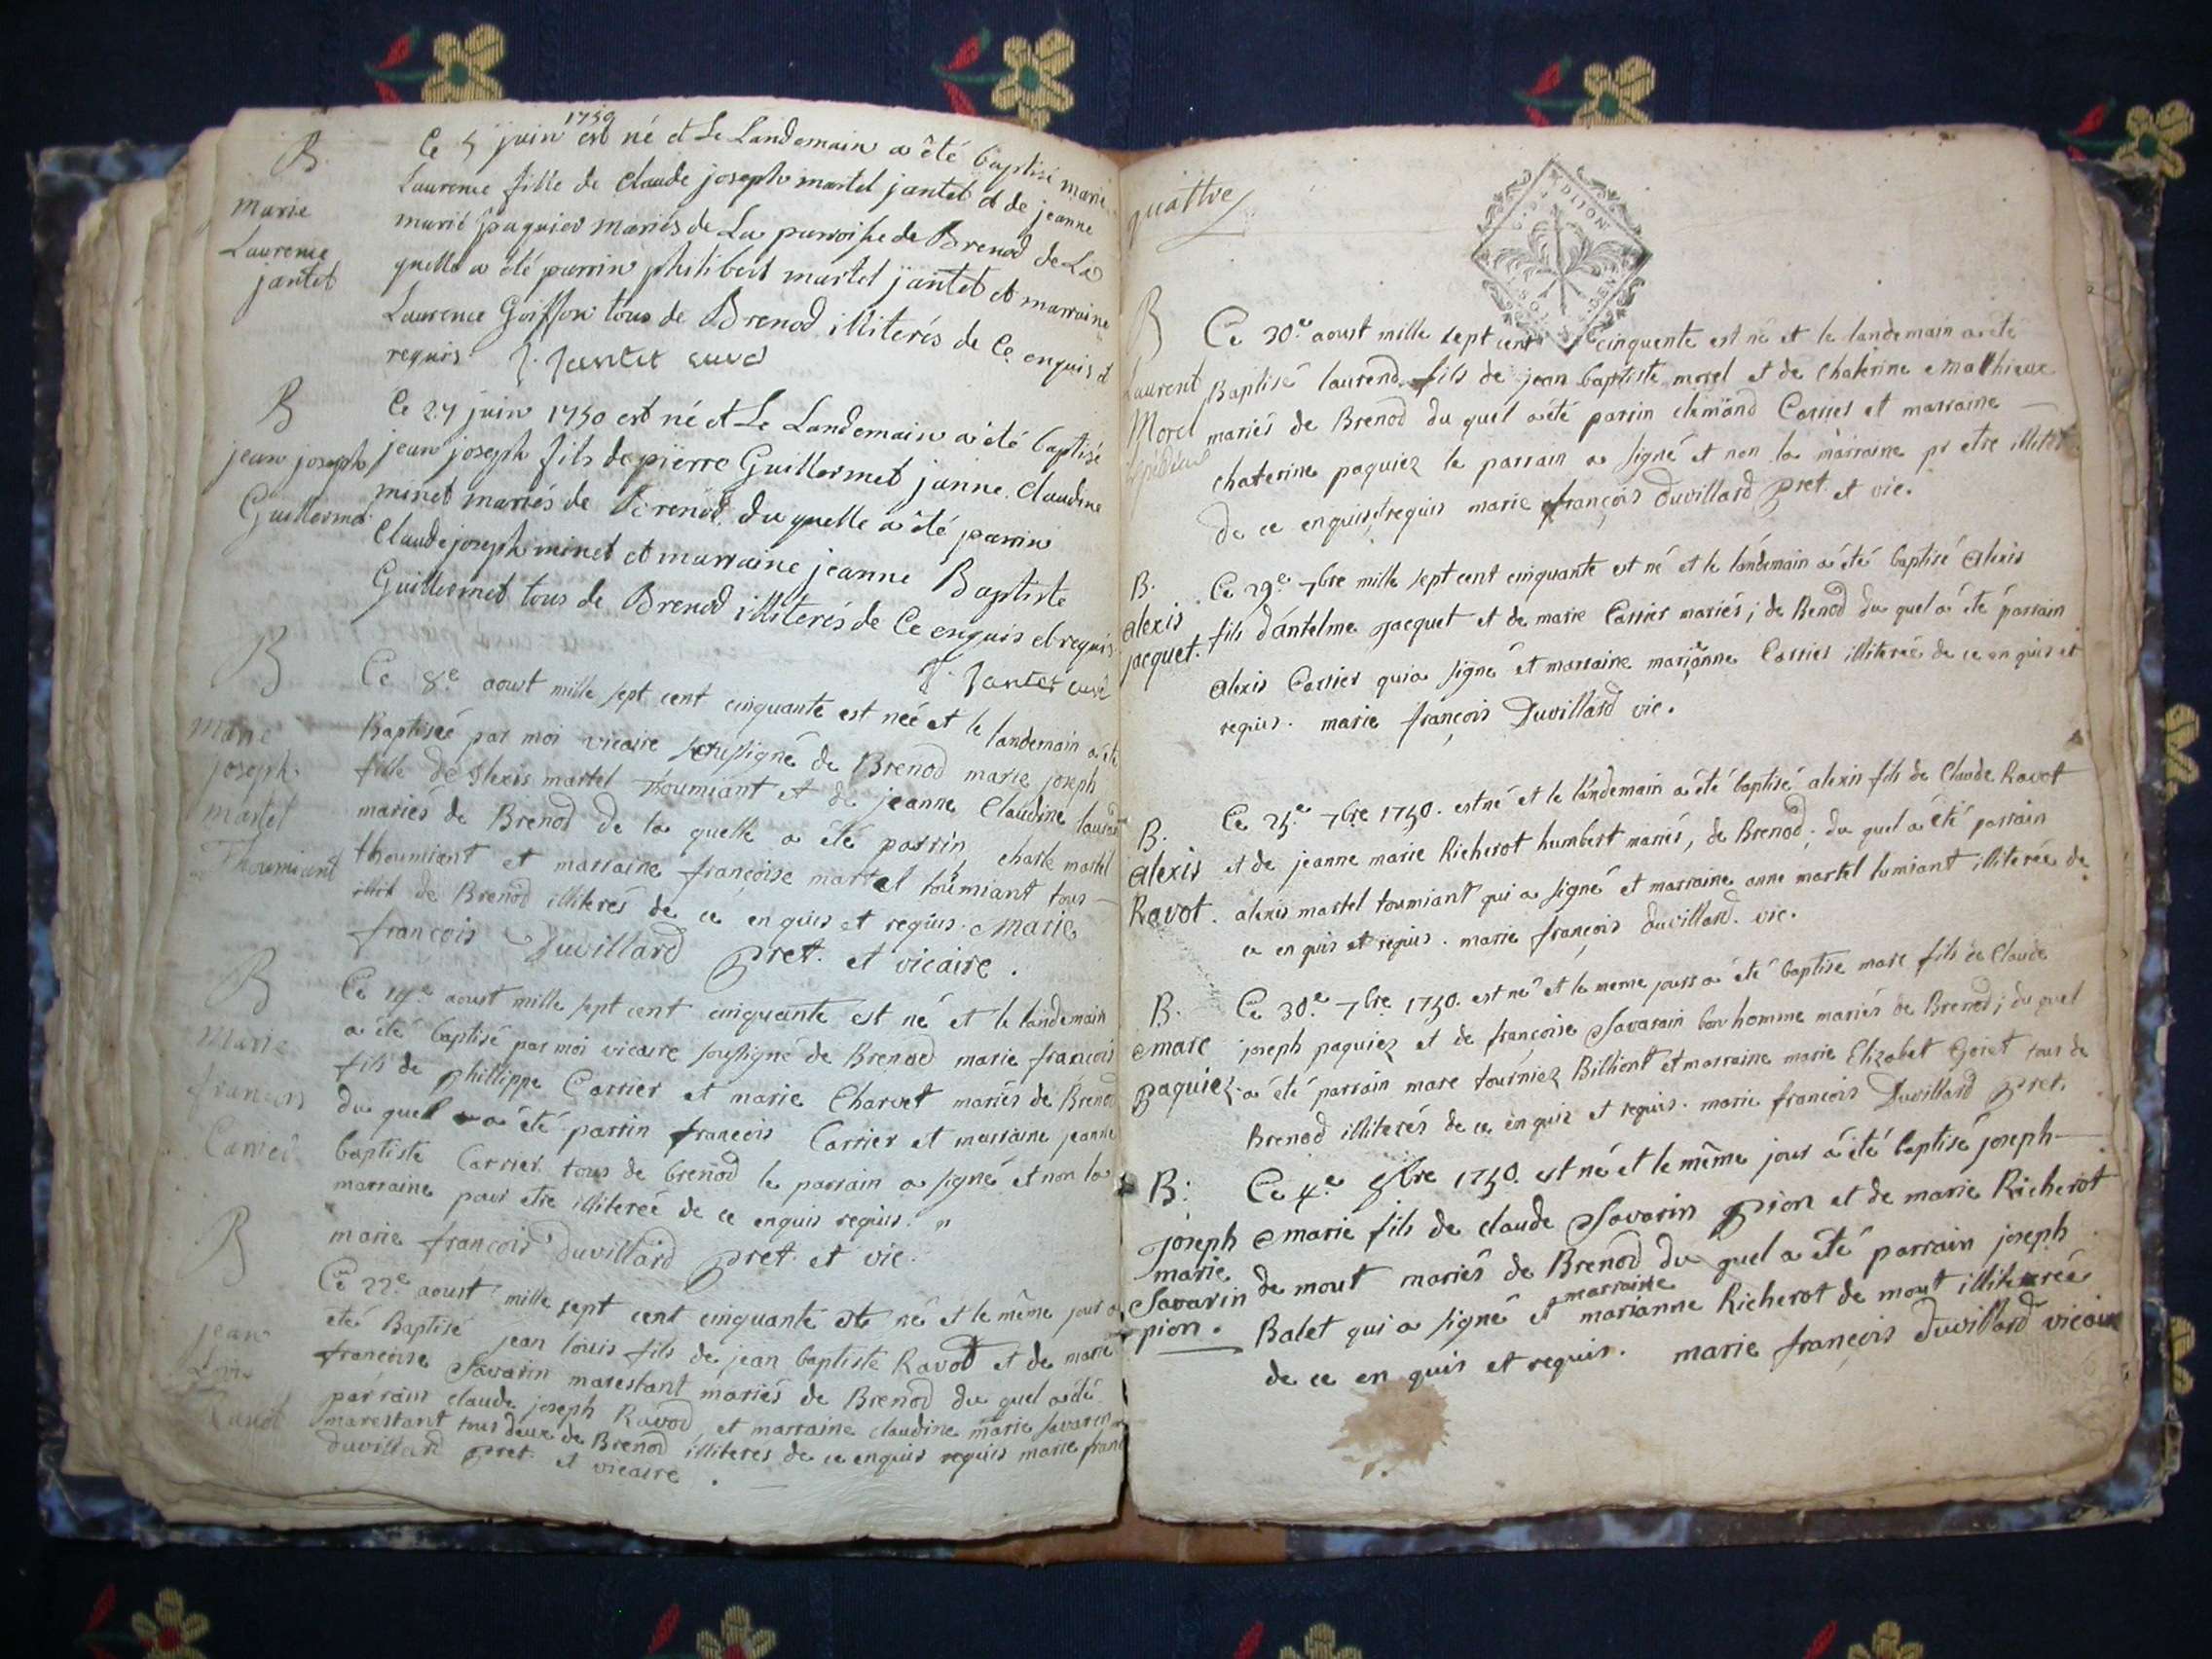 B
Marie
Laurence
jantet
1750
Ce 5 juin est né et Le Landemain a été baptisé marie
Laurence fille de Claude joseph martel jantet et de jeanne
marie paquier mariés de La paroisse de Brenod de La
quelle a été parrin philibert martel jantet et marraine
Laurence Goiffon tous de Brenod illiterés de Ce enquis et
requis. J. Jantet curé
B
jean joseph
Guillermet
Ce 27 juin 1750 est né et Le Landemain a été baptisé
jean joseph fils de pierre Guillermet janne Claudine
minet mariés de Brenod du quelle a été parrin
Claude joseph minet et marraine jeanne Baptiste
Guillermet tous de Brenod illiterés de Ce enquis et requis
J. Jantet curé
B
marie
joseph
martel
Thoumiant
Ce 8e aoust mille sept cent cinquante est neé et le landemain a été
Baptiseé par moi vicaire soussigné de Brenod marie joseph
fille de Alexis martel Thoumiant et de jeanne Claudine
mariés de Brenod de la quelle a été parrin charle martel
thoumiant et marraine françoise martel toumiant tous
de Brenod illiterés de ce en quis et requis. Marie
françois Duvillard pret. et vicaire.
B
Marie
françois
Carrier
Ce 14e aoust mille sept cent cinquante est né et le landemain
a été baptisé par moi vicaire soussigné de Brenod marie françois
fils de phillippe Carrier et marie Charvet mariés de Brenod
du quel a été parrin françois Carrier et marraine jeanne
baptiste Carrier tous de brenod le parrain a signé et non la
marraine pour etre illitereé de ce enquis requis. "
marie françois Duvillard pret. et vic.
B
jean
Louis
Ravot
Ce 22e aoust mille sept cent cinquante est né et le même jour a
eté Baptisé jean louis fils de jean baptiste Ravot et de marie
françoise Savarin marestant mariés de Brenod du quel a été
parrain claude joseph Ravod et marraine claudine marie savarin
marestant tous deux de Brenod illiteres de ce enquis requis marie franc
Duvillard pret. et vicaire.
quattre
G. DE DIJON
SOLS DEN
B
Laurent
Morel
Ce 30e aoust mille sept cent cinquante est né et le landemain a été
Baptisé laurend fils de jean baptiste morel et de chaterine Mathieux
mariés de Brenod du quel a été parrin clemand Carrier et marraine
chaterine paquiez le parrain a signé et non la marraine pr etre illiteré
de ce enquis et requis marie françois Duvillard pret. et vic.
B.
alexis
jacquet.
Ce 29e 7bre mille sept cent cinquante est né et le landemain a été baptisé alexis
fils d'antelme jacquet et de marie Carrier mariés; de Benod du quel a été parrain
alexis Carrier qui a signé et marraine marianne Carrier illitereé de ce en quis et
requis. marie françois Duvillard vic.
B.
alexis
Ravot.
Ce 25e 7bre 1750. est né et le landemain a été baptisé alexis fils de Claude Ravot
et de jeanne marie Richerot humbert mariés, de Brenod; du quel a été parrain
alexis martel toumiant qui a signé et marraine anne martel tumiant illitereé de
ce en quis et requis. marie françois Duvillard. vic.
B.
marc
paquiez
Ce 30e 7bre 1750. est né et le meme jours a été baptise marc fils de Claude
joseph paquiez et de françoise Savarain bon homme mariés de Brenod; du quel
a été parrain marc tourniez Billiont et marraine marie Elizabet Goiet tous de
Brenod illiterés de ce en quis et requis. marie françois Duvillard pret.
B.
joseph
marie
Savarin
pion.
Ce 4e 8bre 1750. est né et le même jour a été baptisé joseph
marie fils de claude Savarin pion et de marie Richerot
de mout mariés de Brenod du quel a été parrain joseph
Balet qui a signé et marraine marianne Richerot de mout illitereé
de ce en quis et requis. marie françois Duvillard vicaire